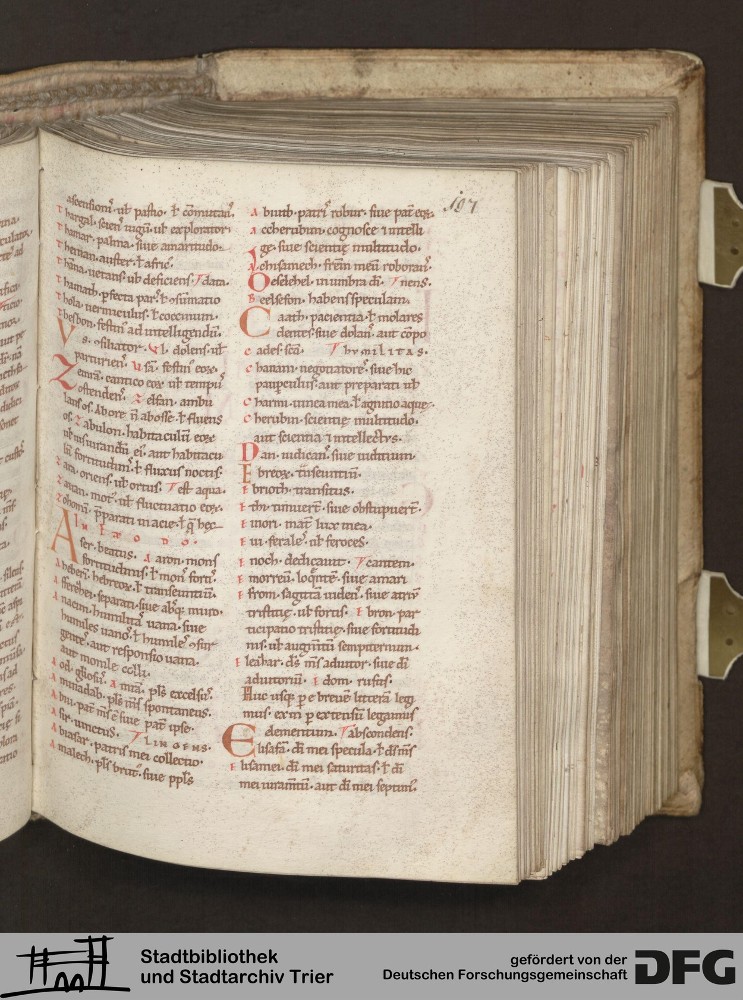 107
ascensionē. uł pastio. ł cōmutaū.
Thargal. scien̄ iugū. uł explorator.
Thamar. palma. siue amaritudo.
Theman. auster. ł afric̄.
Thāna. uetans. uł deficiens. data.
Thamath. pfecta par. ł ɔsūmatio
Thola. uermiculus. ł coccinum.
Thesbon. festin̄ ad intellegendū.
V s. ɔsiliator. Vl. dolens. uł
parturien̄. Vsā. festin̄ eoꝝ.
Zemrā. cantico eoꝝ. uł tempus
ostenden̄. Zelfan. ambu
lans os. Abore n̄ abosse. ł fluens
os. Zabulon. habitaculū eoꝝ
uł iusiurandū ei. aut habitacu
lū fortitudinis. ł fluxus noctis.
Zara. oriens. uł ortus. est aqua.
Zauan. mot. uł fluctuatio eoꝝ.
Zohomī. pparati in acie. ł q̄ hec
IN EXODO.
Aser. beatus. Aaron. mons
fortitudinis. ł mons fortis.
Abeberī. hebreoꝝ. ł transeuntiū.
Afferezei. separati. siue absq; muro.
Anacim. humilitas uana. siue
humiles uani. ł humiles ɔsur
gentes. aut responsio uana.
aut monile colli.
Aod. gliosus. Amrā. pls excelsus.
Aminadab. pls ms spontaneus.
Abiu. pat ms ē siue pat ipse.
Asir. uinctus. LINGENS.
Abiasar. patris mei collectio.
Amalech. pls brut. siue ppls
Abiuth. patris robur. siue pat eoꝝ.
Accherubim. cognosce ⁊ intelli
ge. siue scientie multitudo.
Achisamech. frēm meū roboran̄.
Beselehel. in umbra dī. nens.
Beelsefon. habens speculam.
Caath. pacientia. ł molares
dentes. siue dolan̄. aut cōpo
Cades. scā. HUMILITAS.
Chanani. negotiatores. siue hic
paupculus. aut preparati. uł
Charmi. uinea mea. ł agnitio aque.
Cherubin. scientie multitudo.
aut scientia ⁊ intellectus.
Dan. iudicans. siue iudicium.
Ebreoꝝ. t̄nseuntiū.
Ebrioth. transitus.
Ethi. timuerт. siue obstupuerт.
Emori. mat̄ lux mea.
Eui. ferales. uł feroces.
Enoch. dedicauit. cantem.
Emorreū. loq̄ntē. siue amari
Efrom. sagittā uidens. siue atriū
tristitie. uł fortis. Ebron. par
ticipatio tristitie. siue fortitudi
nis. uł augm̄tū sempiternum.
Eleihar. ds ms adiutor. siue dī
adiutoriū. Edom. rufus.
Huc usq; p e breuē litterā legi
mus. ex īn p extensū legamus
Elementum. abscondens.
Elisafā. dī mei specula. ł ds ms
Elisamei. dī mei saturitas. ł dī
mei iuram̄tū. aut dī mei septim̄.
Stadtbibliothek
und Stadtarchiv Trier
gefördert von der
Deutschen Forschungsgemeinschaft
DFG